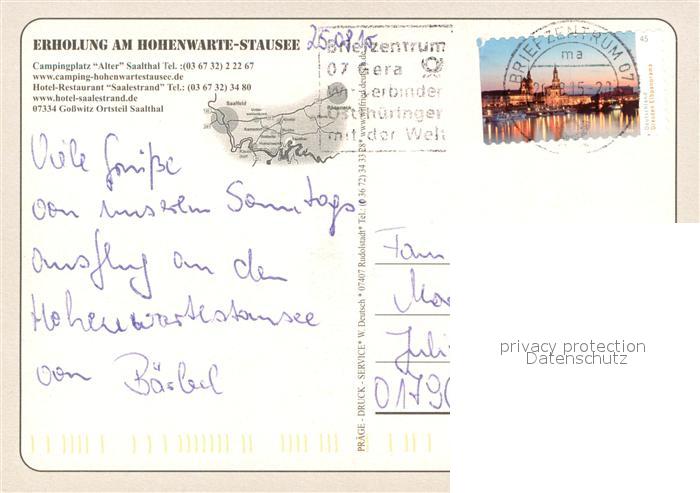 ERHOLUNG AM HOHENWARTE-STAUSEE
Campingplatz "Alter" Saalthal Tel.: (03 67 32) 2 22 67
www.camping-hohenwartestausee.de
Hotel-Restaurant "Saalestrand" Tel.: (03 67 32) 34 80
www.hotel-saalestrand.de
07334 Goßwitz Ortsteil Saalthal
Saalfeld
25.08.15
Briefzentrum
07 Gera
Wir verbinden
Ostthüringen
mit der Welt
BRIEFZENTRUM 07
ma
45
Deutschland
Dresden Elbpanorama
Viele Grüße
von unserem Sonntags
ausflug an den
Hohenwartestausee
von Bärbel
PRÄGE - DRUCK - SERVICE * W. Deutsch * 07407 Rudolstadt * Tel.: (0 36 72) 34 33 28 *
Fam
Mar
Juli
0179
privacy protection
Datenschutz